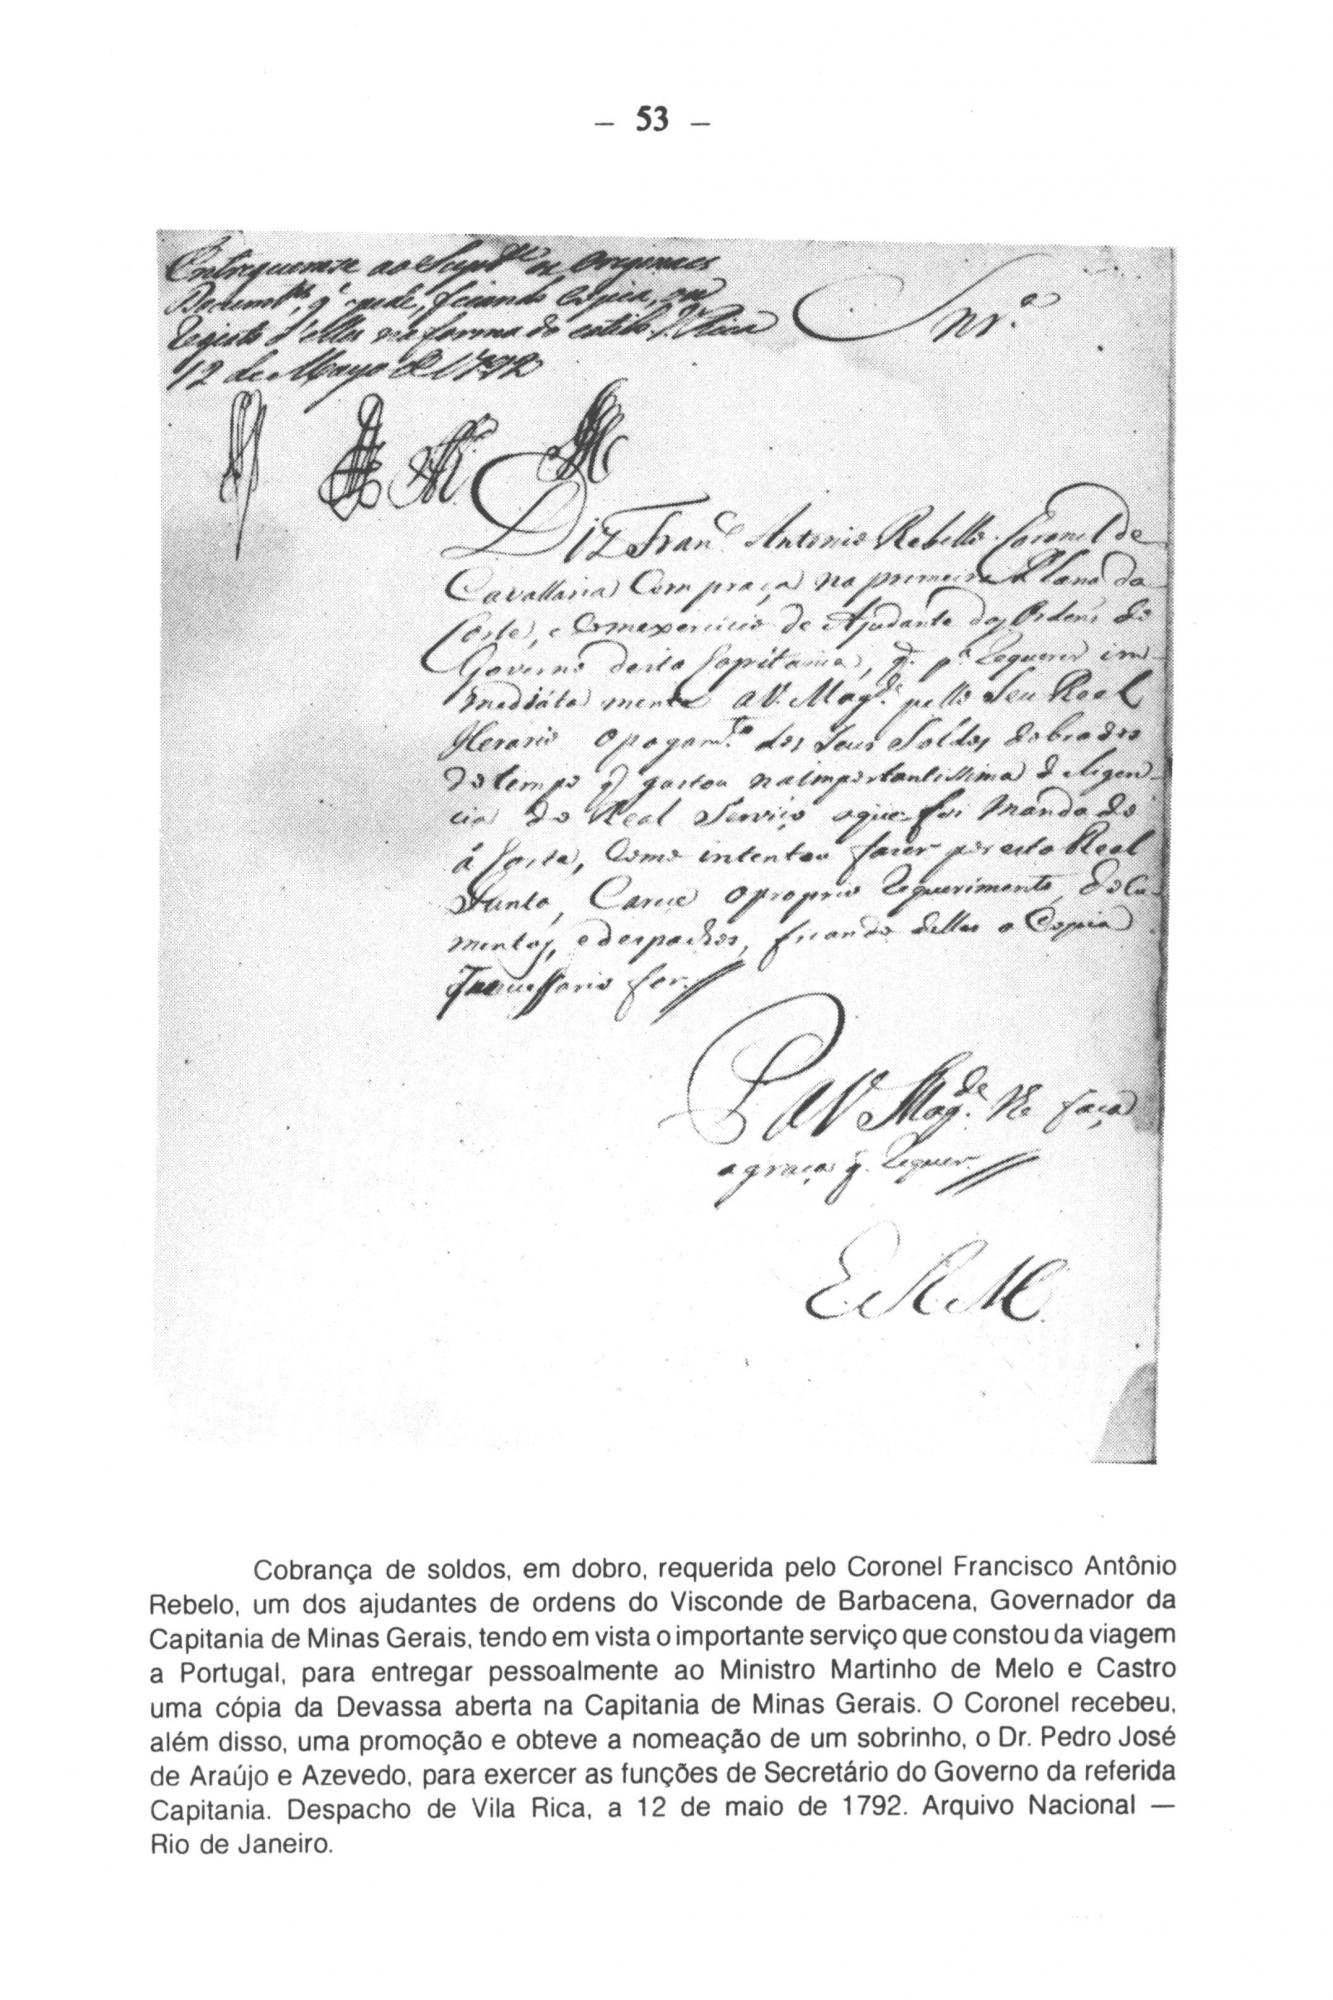 – 53 –
Entreguemse ao Supp.te os Originaes
Docum.tos q' pede, ficando Copia, ou
Registo d'elles na forma do estilo. V.a Rica
12 de Mayo de 1792
Snr.a
Diz Fran.co Antonio Rebello Coronel de
Cavallaria Com praça na primeira Plana da
Corte, e com exercicio de Ajudante das Ordens do
Governo desta Capitania, q. p.a Requerer im-
mediáta mente a V. Mag.de pello Seu Real
Herario o pagam.to dos seus Soldos dobrados
do tempo q gastou na importantissima deligen-
cia do Real Serviço aque foi mandado
á Corte, como intentou fazer por esta Real
Junta, Carece o proprio Requerimento, docu-
mentos, e despachos, ficando delles a Copia
necessario for.
P a V Mag.de lhe faça
a graça q. Requer.
E R M.
Cobrança de soldos, em dobro, requerida pelo Coronel Francisco Antônio
Rebelo, um dos ajudantes de ordens do Visconde de Barbacena, Governador da
Capitania de Minas Gerais, tendo em vista o importante serviço que constou da viagem
a Portugal, para entregar pessoalmente ao Ministro Martinho de Melo e Castro
uma cópia da Devassa aberta na Capitania de Minas Gerais. O Coronel recebeu,
além disso, uma promoção e obteve a nomeação de um sobrinho, o Dr. Pedro José
de Araújo e Azevedo, para exercer as funções de Secretário do Governo da referida
Capitania. Despacho de Vila Rica, a 12 de maio de 1792. Arquivo Nacional —
Rio de Janeiro.